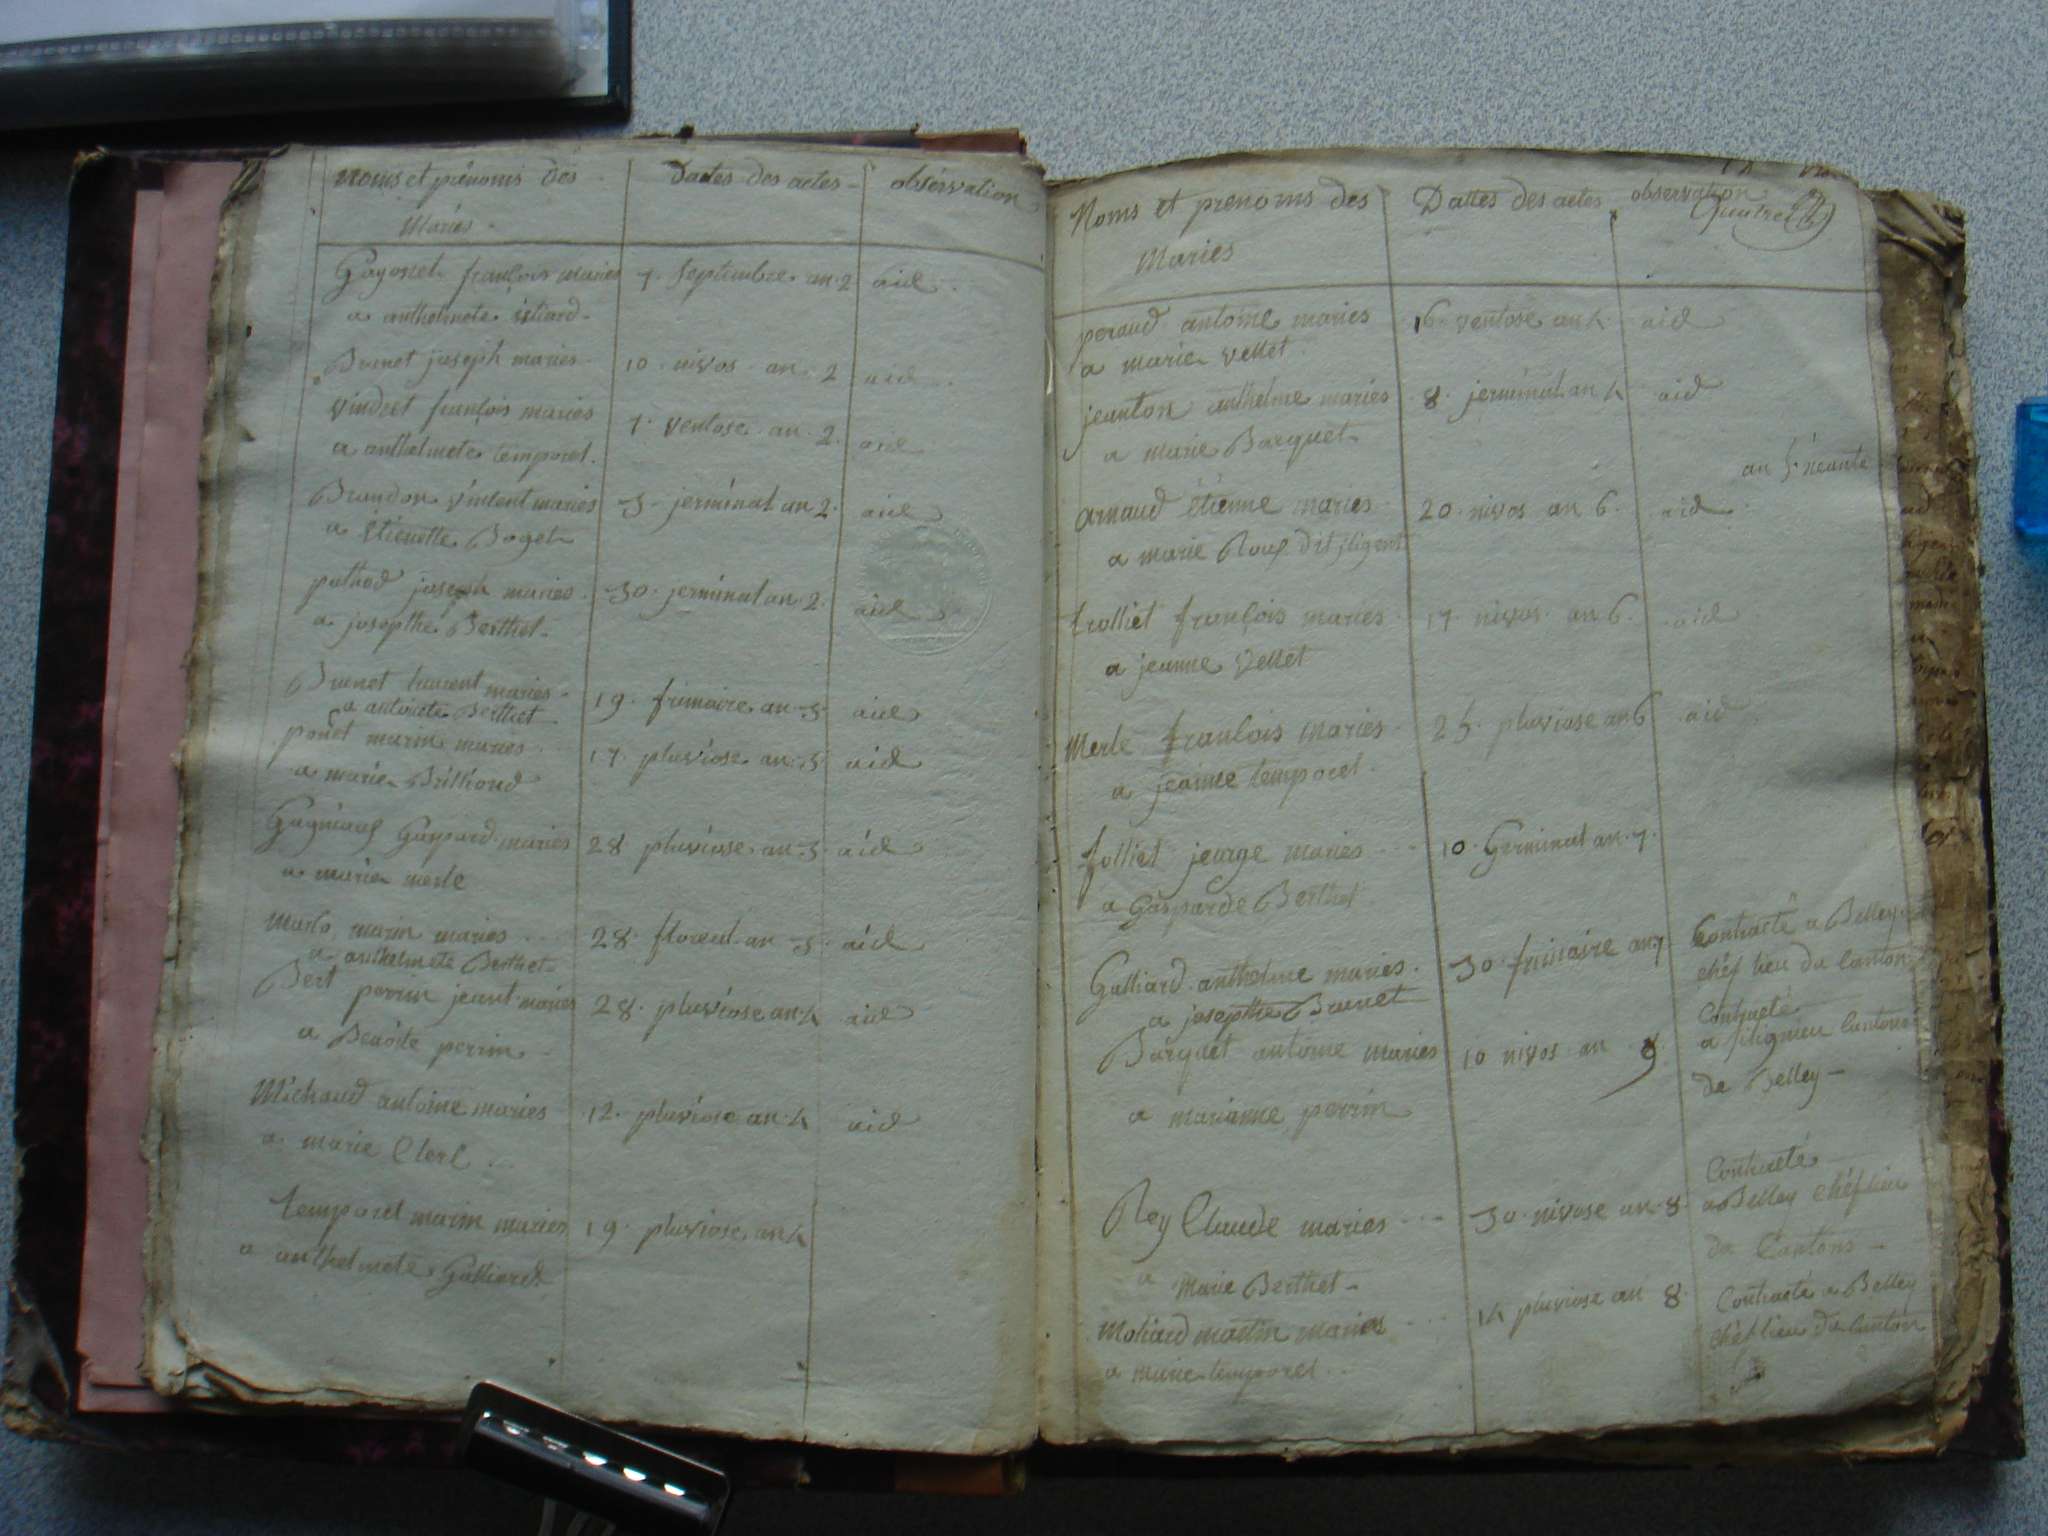 Noms et prénoms des
Mariés
Dates des actes
observation
françois mariés
a anthelmete
7. septembre an 2
aid
Brunet joseph mariés
10. nivos an 2
aid
Vindret françois mariés
a anthelmete temporel
7. ventose an 2
aid
Brandon vincent mariés
a étienette Boget
3. jerminal an 2
aid
joseph mariés
a josepthé Berthet
30. jerminal an 2
aid
Brunet laurent mariés
a antoinete Berthet
19. frimaire an 3
aid
marin mariés
a marie Brilliord
17. pluviose an 3
aid
Gaspard mariés
a marie merle
28 pluviose an 3
aid
marin mariés
a anthelmete Berthet
28. floreal an 3
aid
Bert perrin jeant mariés
a Benoite perrin
28. pluviose an 4
aid
Michaud antoine mariés
a marie Clerc
12. pluviose an 4
aid
temporel marin mariés
a anthelmete Galliard
19. pluviose an 4
Noms et prenoms des
Maries
Dattes des actes
observation
peraud antoine maries
a marie vellet
16 ventose an 4
aid
jeanton anthelme mariés
a marie Barquet
8. jerminal an 4
aid
an 5 neante
Arnaud étienne maries
a marie Roux dit
20. nivos an 6
aid
trolliet françois mariés
a jeanne Vellet
17 nivos an 6
aid
Merle françois mariés
a jeanne temporel
25. pluviose an 6
aid
folliet jeorge mariés
a Gasparde Berthet
10. Germinal an 7.
Galliard anthelme mariés
a josepthe Brunet
30 frimaire an 7
Contracté a Belley
chéf lieu du Canton
Barquet antoine mariés
a marianne perrin
10 nivos an
Contracté
a Canton
de Belley
Rey Claude maries
a
Marie Berthet
30. nivose an 8.
Contracté
a Belley chéf lieu
du Canton
martin mariés
a marie temporel
14 pluviose an 8.
Contracté a Belley
chéf lieu du Canton